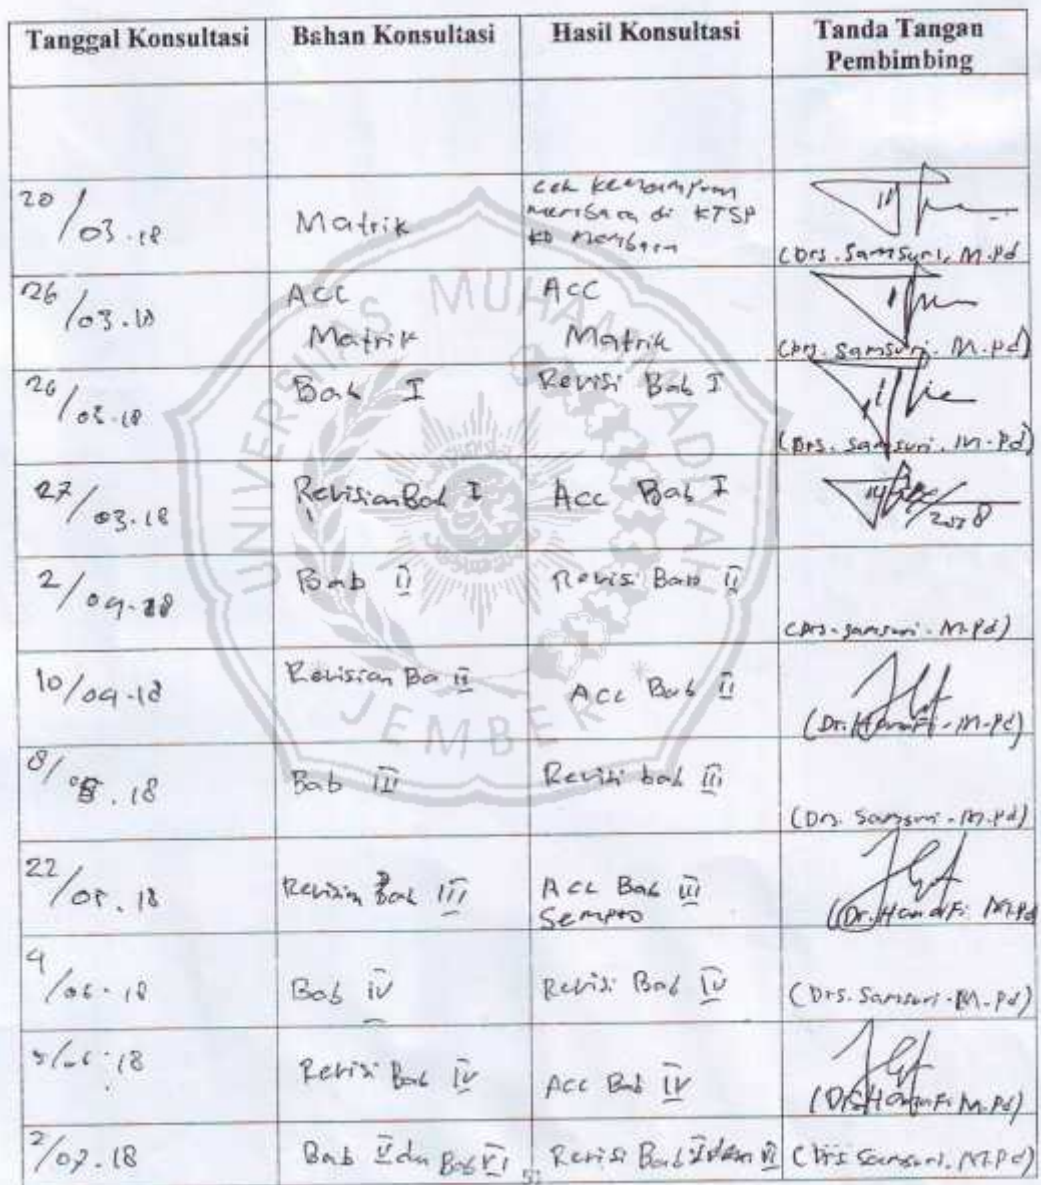 Tanggal Konsultasi Bahan Konsultasi Hasil Konsultasi Tanda Tangan
Pembimbing
20/03.18 Matrik cek kemampuan
membaca di KTSP
KD membaca
(Drs. Samsuri, M.Pd
26/03.18 Acc Acc
Matrik Matrik
(Drs. Samsuri. M.Pd)
26/03.18 Bab I Revisi Bab I
(Drs. Samsuri. M.Pd)
27/03.18 Revisian Bab I Acc Bab I
2018
2/04.18 Bab II Revisi Bab II
(Drs. Samsuri. M.Pd)
10/04.18 Revisian Ba II Acc Bab II
(Dr. Hanafi. M.Pd)
8/05.18 Bab III Revisi bab III
(Drs. Samsuri. M.Pd)
22/05.18 Revisin Bab III Acc Bab III
Sempro
(Dr. Hanafi. M.Pd
4/06.18 Bab IV Revisi Bab IV (Drs. Samsuri. M.Pd)
5/06.18 Revisi Bab IV Acc Bab IV
Hanafi M.Pd)
2/07.18 Bab V dan Bab VI Revisi Bab V dan VI (Drs Samsuri. M.Pd)
UNIVERSITAS MUHAMMADIYAH
JEMBER